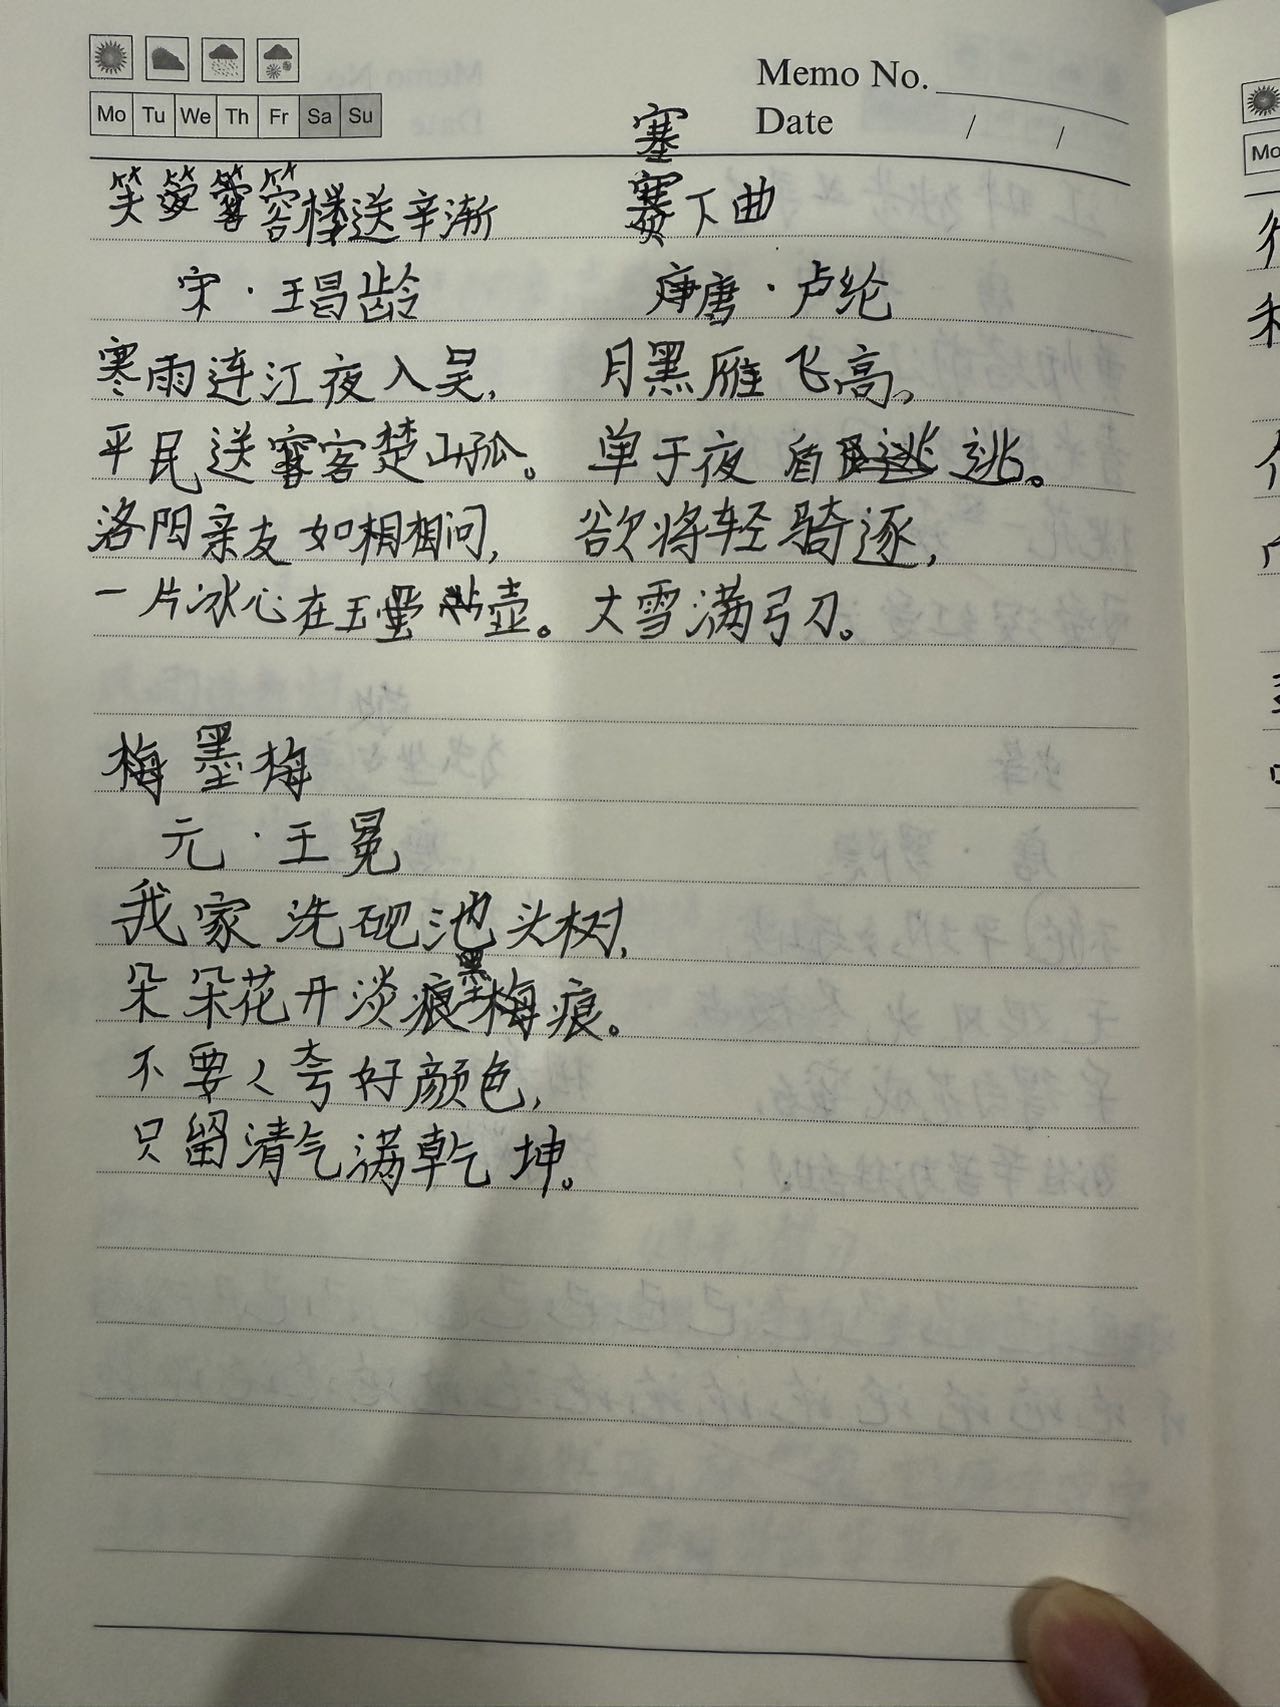 Memo No.
Mo Tu We Th Fr Sa Su
Date / /
塞
楼送辛渐
下曲
宋·王昌龄
唐·卢纶
寒雨连江夜入吴,
平民送客楚山孤。
洛阳亲友如相相问,
一片冰心在玉壶。
月黑雁飞高。
单于夜逃。
欲将轻骑逐,
大雪满弓刀。
梅墨梅
元·王冕
我家洗砚池头树,
朵朵花开淡痕墨梅痕。
不要人夸好颜色,
只留清气满乾坤。
Mo